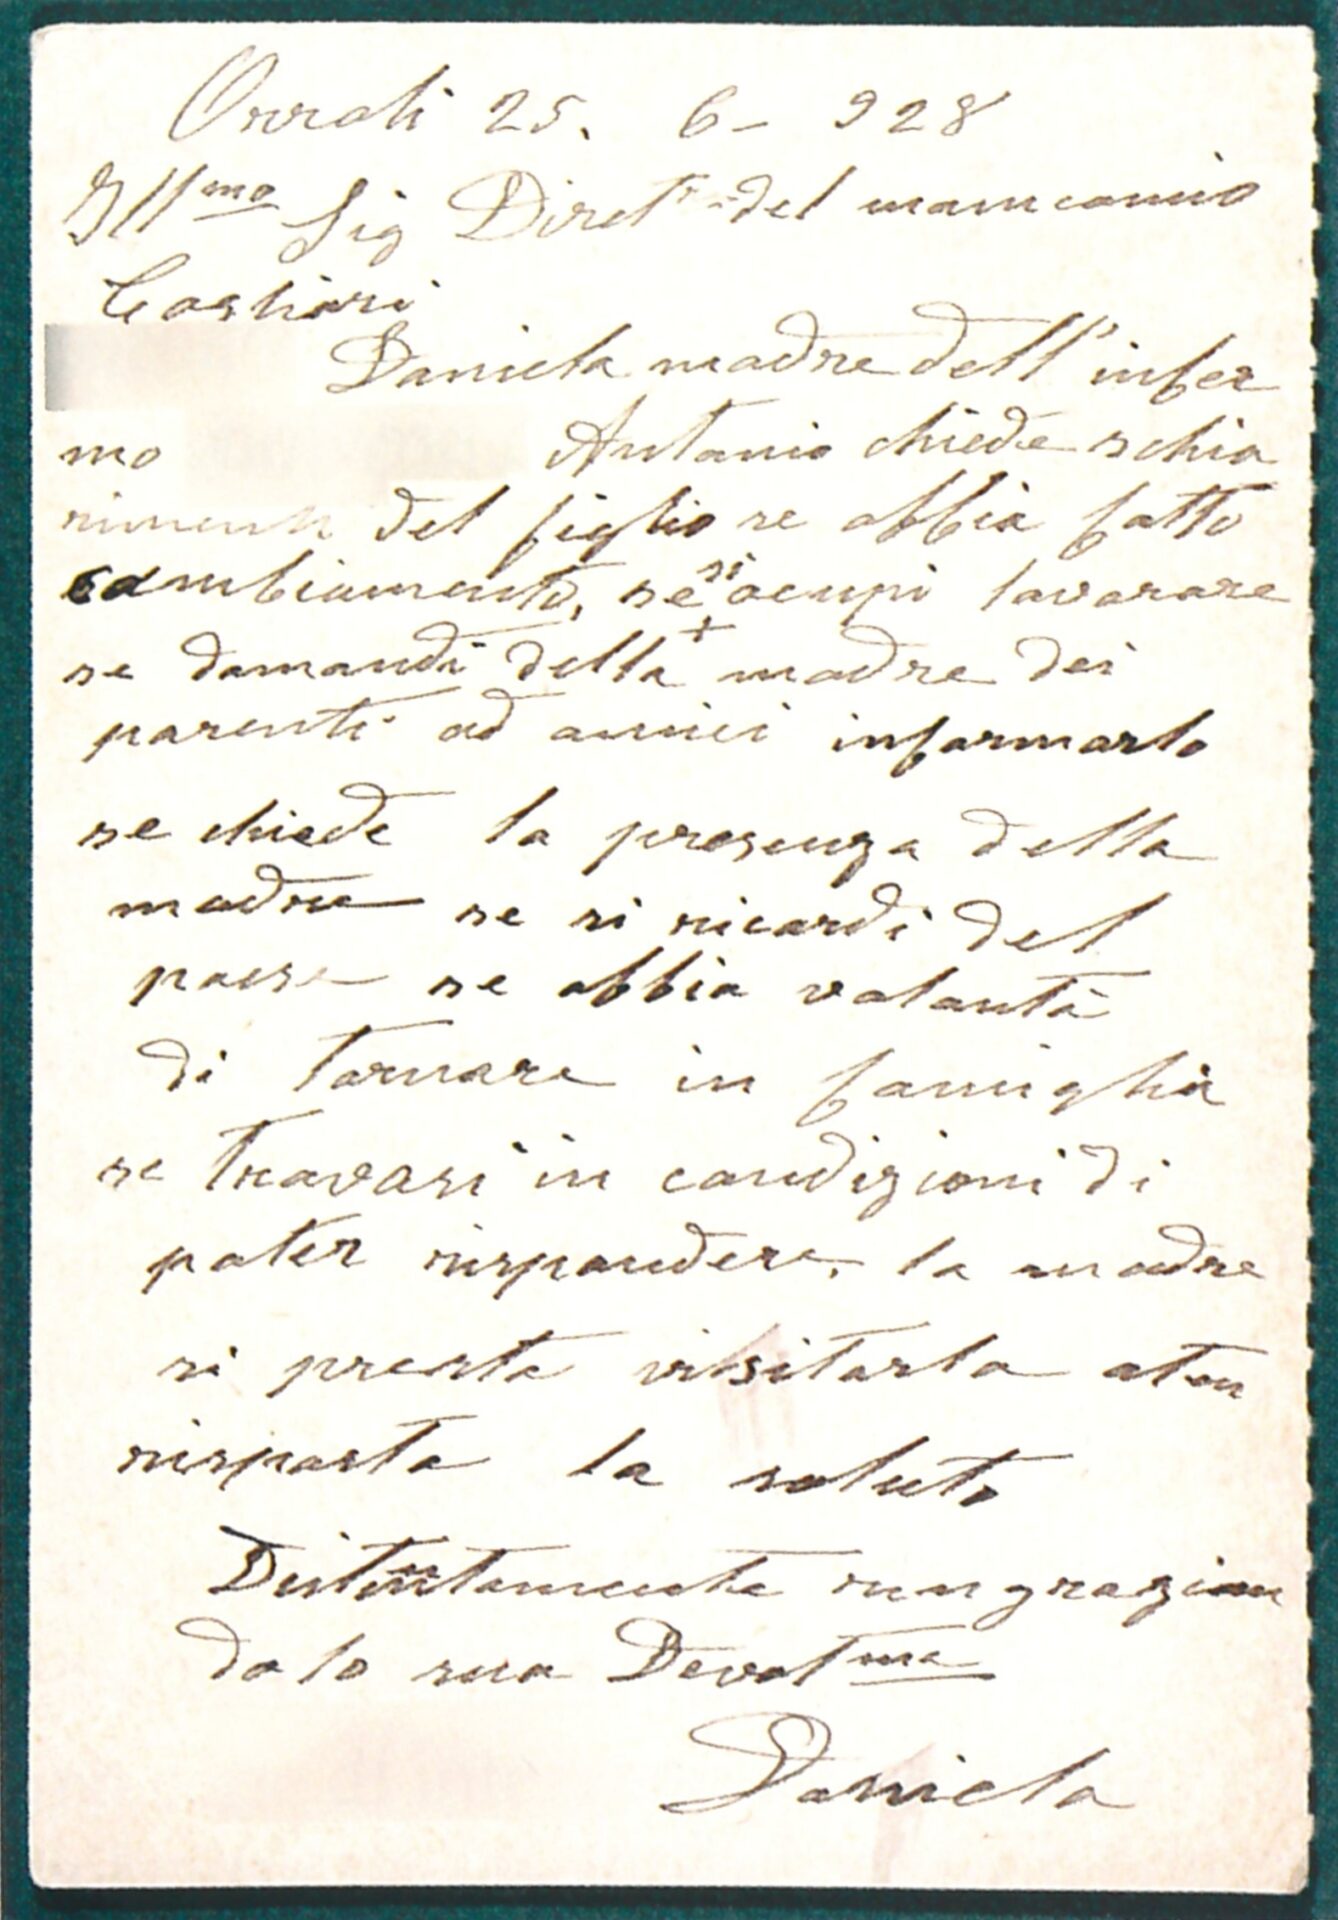 Orroli 25. 6- 928
Illmo Sig Diret del manicomio
Cagliari
Daniela madre dell'infer
mo Antonio chiede schia
rimenti del figlio se abbia fatto
cambiamento, se si ocupi lavorare
se domandi della madre dei
parenti ad amici informarlo
se chiede la presenza della
madre se si ricordi del
paese se abbia volontà
di tornare in famiglia
se trovasi in condizioni di
poter rispondere, la madre
si presta visitarlo aten
risposta la saluto
Distintamente rungrazian
dolo sua Devotma
Daniela